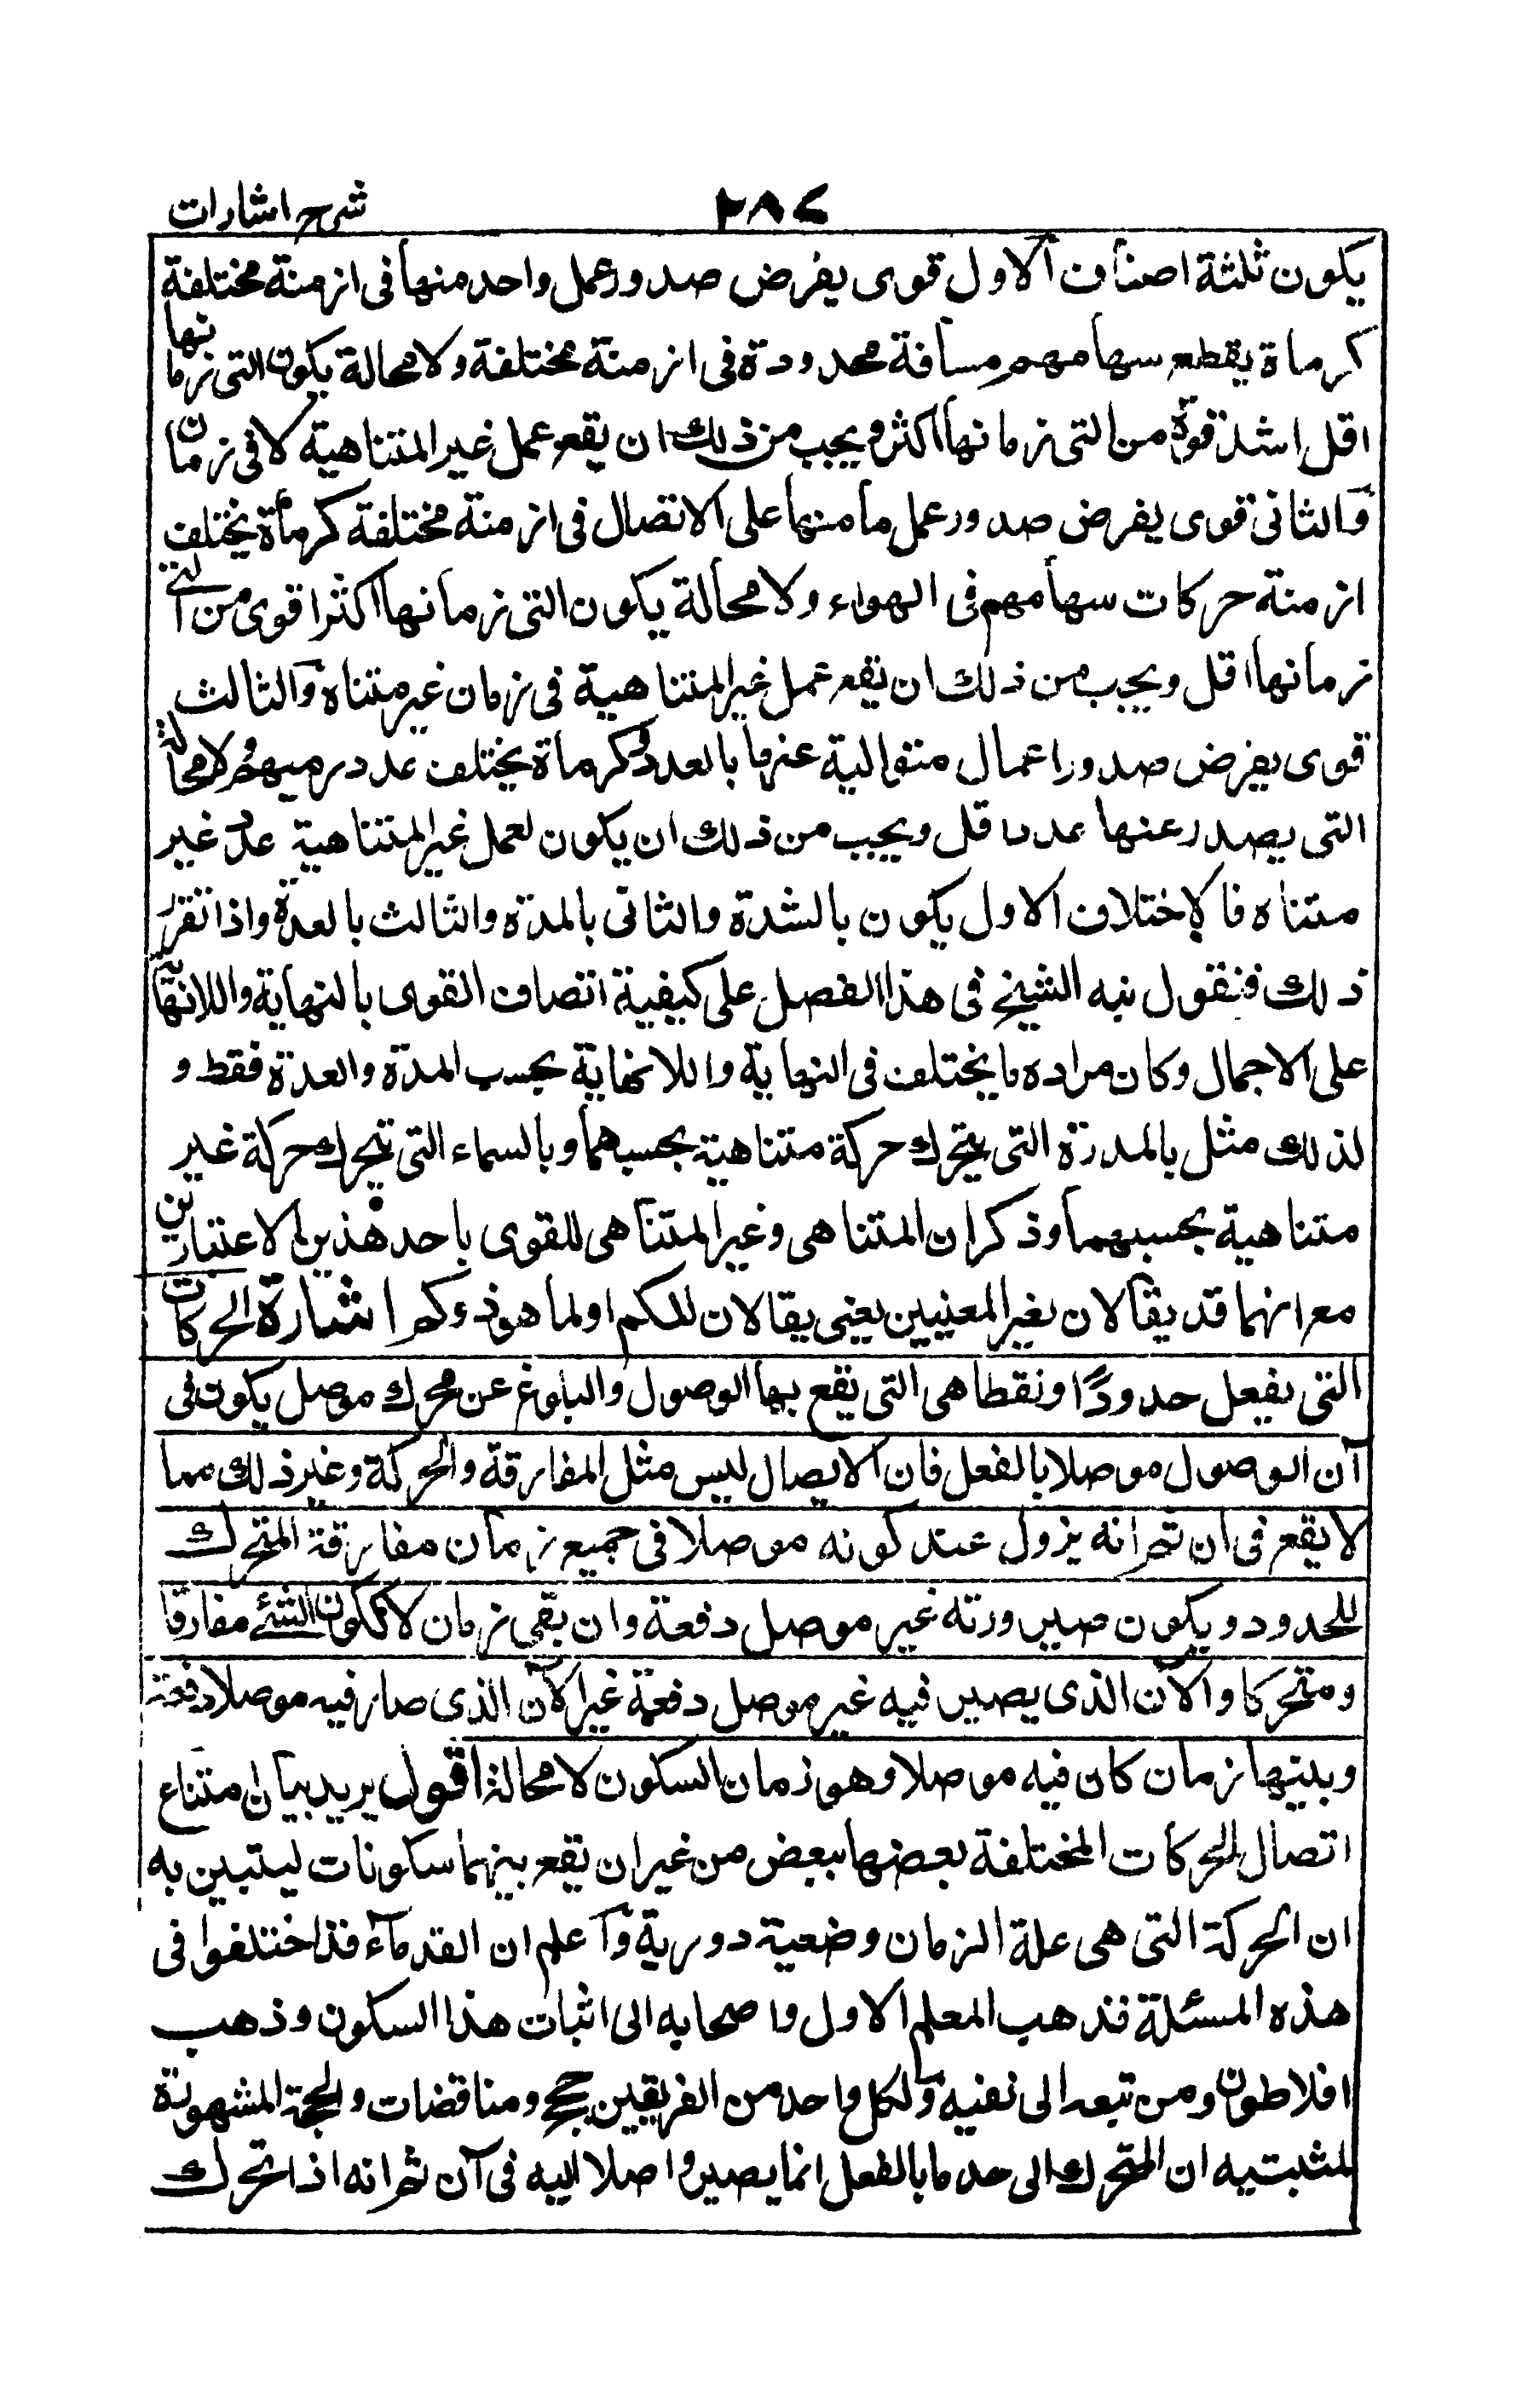 ٢٨٧ شرح اشارات
يكون ثلثة اصناف الاول قوى يفرض صدور عمل واحد منها فى ازمنة مختلفة
كرماة يقطع سهامهم مسافة محدودة فى ازمنة مختلفة ولا محالة يكون التى زمانها
اقل اشد قوة من التى زمانها اكثر ويجب من ذلك ان يقع عمل غير المتناهية لا فى زمان
والثانى قوى يفرض صدور عمل ما منها على الاتصال فى ازمنة مختلفة كرماة يختلف
ازمنة حركات سهامهم فى الهواء ولا محالة يكون التى زمانها اكثر اقوى من التى
زمانها اقل ويجب من ذلك ان يقع عمل غير المتناهية فى زمان غير متناه والثالث
قوى يفرض صدور اعمال متوالية عنها بالعدد كرماة يختلف عدد رميهم ولا محالة
التى يصدر عنها عدد اقل ويجب من ذلك ان يكون لعمل غير المتناهية عدد غير
متناه فالاختلاف الاول يكون بالشدة والثانى بالمدة والثالث بالعدة واذا تقرر
ذلك فنقول نبه الشيخ فى هذا الفصل على كيفية اتصاف القوى بالنهاية واللانهاية
على الاجمال وكان مراده ما يختلف فى النهاية واللانهاية بحسب المدة والعدة فقط و
لذلك مثل بالمدرة التى يتحرك حركة متناهية بحسبهما وبالسماء التى تتحرك حركة غير
متناهية بحسبهما وذكر ان المتناهى وغير المتناهى للقوى باحد هذين الاعتبارين
مع انهما قد يقالان بغير المعنيين يعنى يقالان للكم او لما هو ذو كم اشارة الحركات
التى يفعل حدودًا ونقطا هى التى يقع بها الوصول والبلوغ عن محرك موصل يكون فى
آن الوصول موصلا بالفعل فان الايصال ليس مثل المفارقة والحركة وغير ذلك مما
لا يقع فى ان ثم انه يزول عند كونه موصلا فى جميع زمان مفارقة المتحرك
للحدود ويكون صيرورته غير موصل دفعة وان بقى زمان لا ككون الشئ مفارقا
ومتحركا والآن الذى يصير فيه غير موصل دفعة غير الآن الذى صار فيه موصلا دفعة
وبينهما زمان كان فيه موصلا وهو زمان السكون لا محالة اقول يريد بيان امتناع
اتصال الحركات المختلفة بعضها ببعض من غير ان يقع بينهما سكونات ليتبين به
ان الحركة التى هى علة الزمان وضعية دورية وآعلم ان القدمآء قد اختلفوا فى
هذه المسئلة فذهب المعلم الاول واصحابه الى اثبات هذا السكون وذهب
افلاطون ومن تبعه الى نفيه ولكل واحد من الفريقين حجج ومناقضات والحجة المشهورة
لمثبتيه ان المتحرك الى حد ما بالفعل انما يصير واصلا اليه فى آن ثم انه اذا تحرك